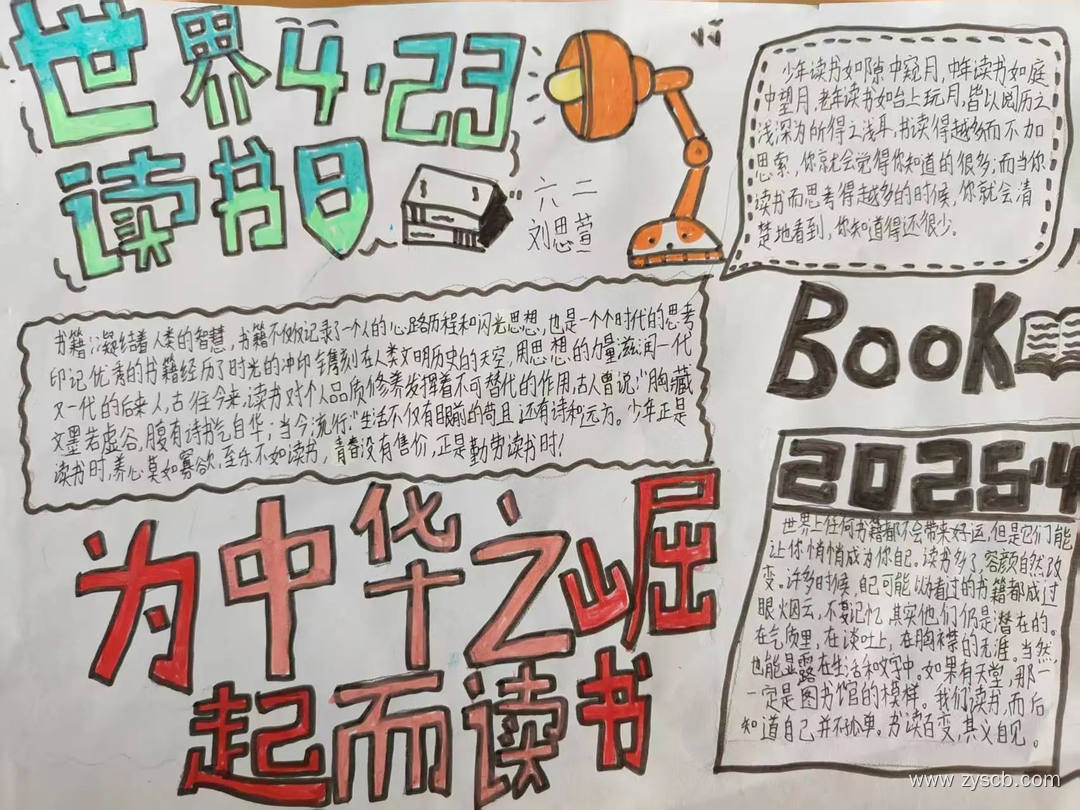 世界4·23
读书日
六二
刘思萱
少年读书如隙中窥月,中年读书如庭
中望月,老年读书如台上玩月,皆以阅历之
浅深为所得之浅耳,书读得越多而不加
思索,你就会觉得你知道的很多;而当你
读书而思考得越多的时候,你就会清
楚地看到,你知道得还很少。
书籍凝结着人类的智慧,书籍不仅仅记录了一个人的心路历程和闪光思想,也是一个个时代的思考
印记优秀的书籍经历了时光的冲印镌刻在人类文明历史的天空,用思想的力量滋润一代
又一代的后来人,古往今来,读书对个人品质修养发挥着不可替代的作用,古人曾说:“胸藏
文墨若虚谷,腹有诗书气自华;当今流行:“生活不仅有眼前的苟且还有诗和远方。少年正是
读书时,养心莫如寡欲,至乐不如读书,青春没有售价,正是勤劳读书时!
BooK
2025·4
世界上任何书籍都不会带来好运,但是它们能
让你悄悄成为你自己。读书多了,容颜自然改
变。许多时候,自己可能以为看过的书籍都成过
眼火烟云,不复记忆,其实他们仍是潜在的。
在气质里,在谈吐上,在胸襟的无涯。当然,
也能显露在生活和文字中。如果有天堂,那一
一定是图书馆的模样。我们读书,而后
知道自己并不孤单。书读百变,其义自见。
为中华之崛
起而读书
www.zyscb.com